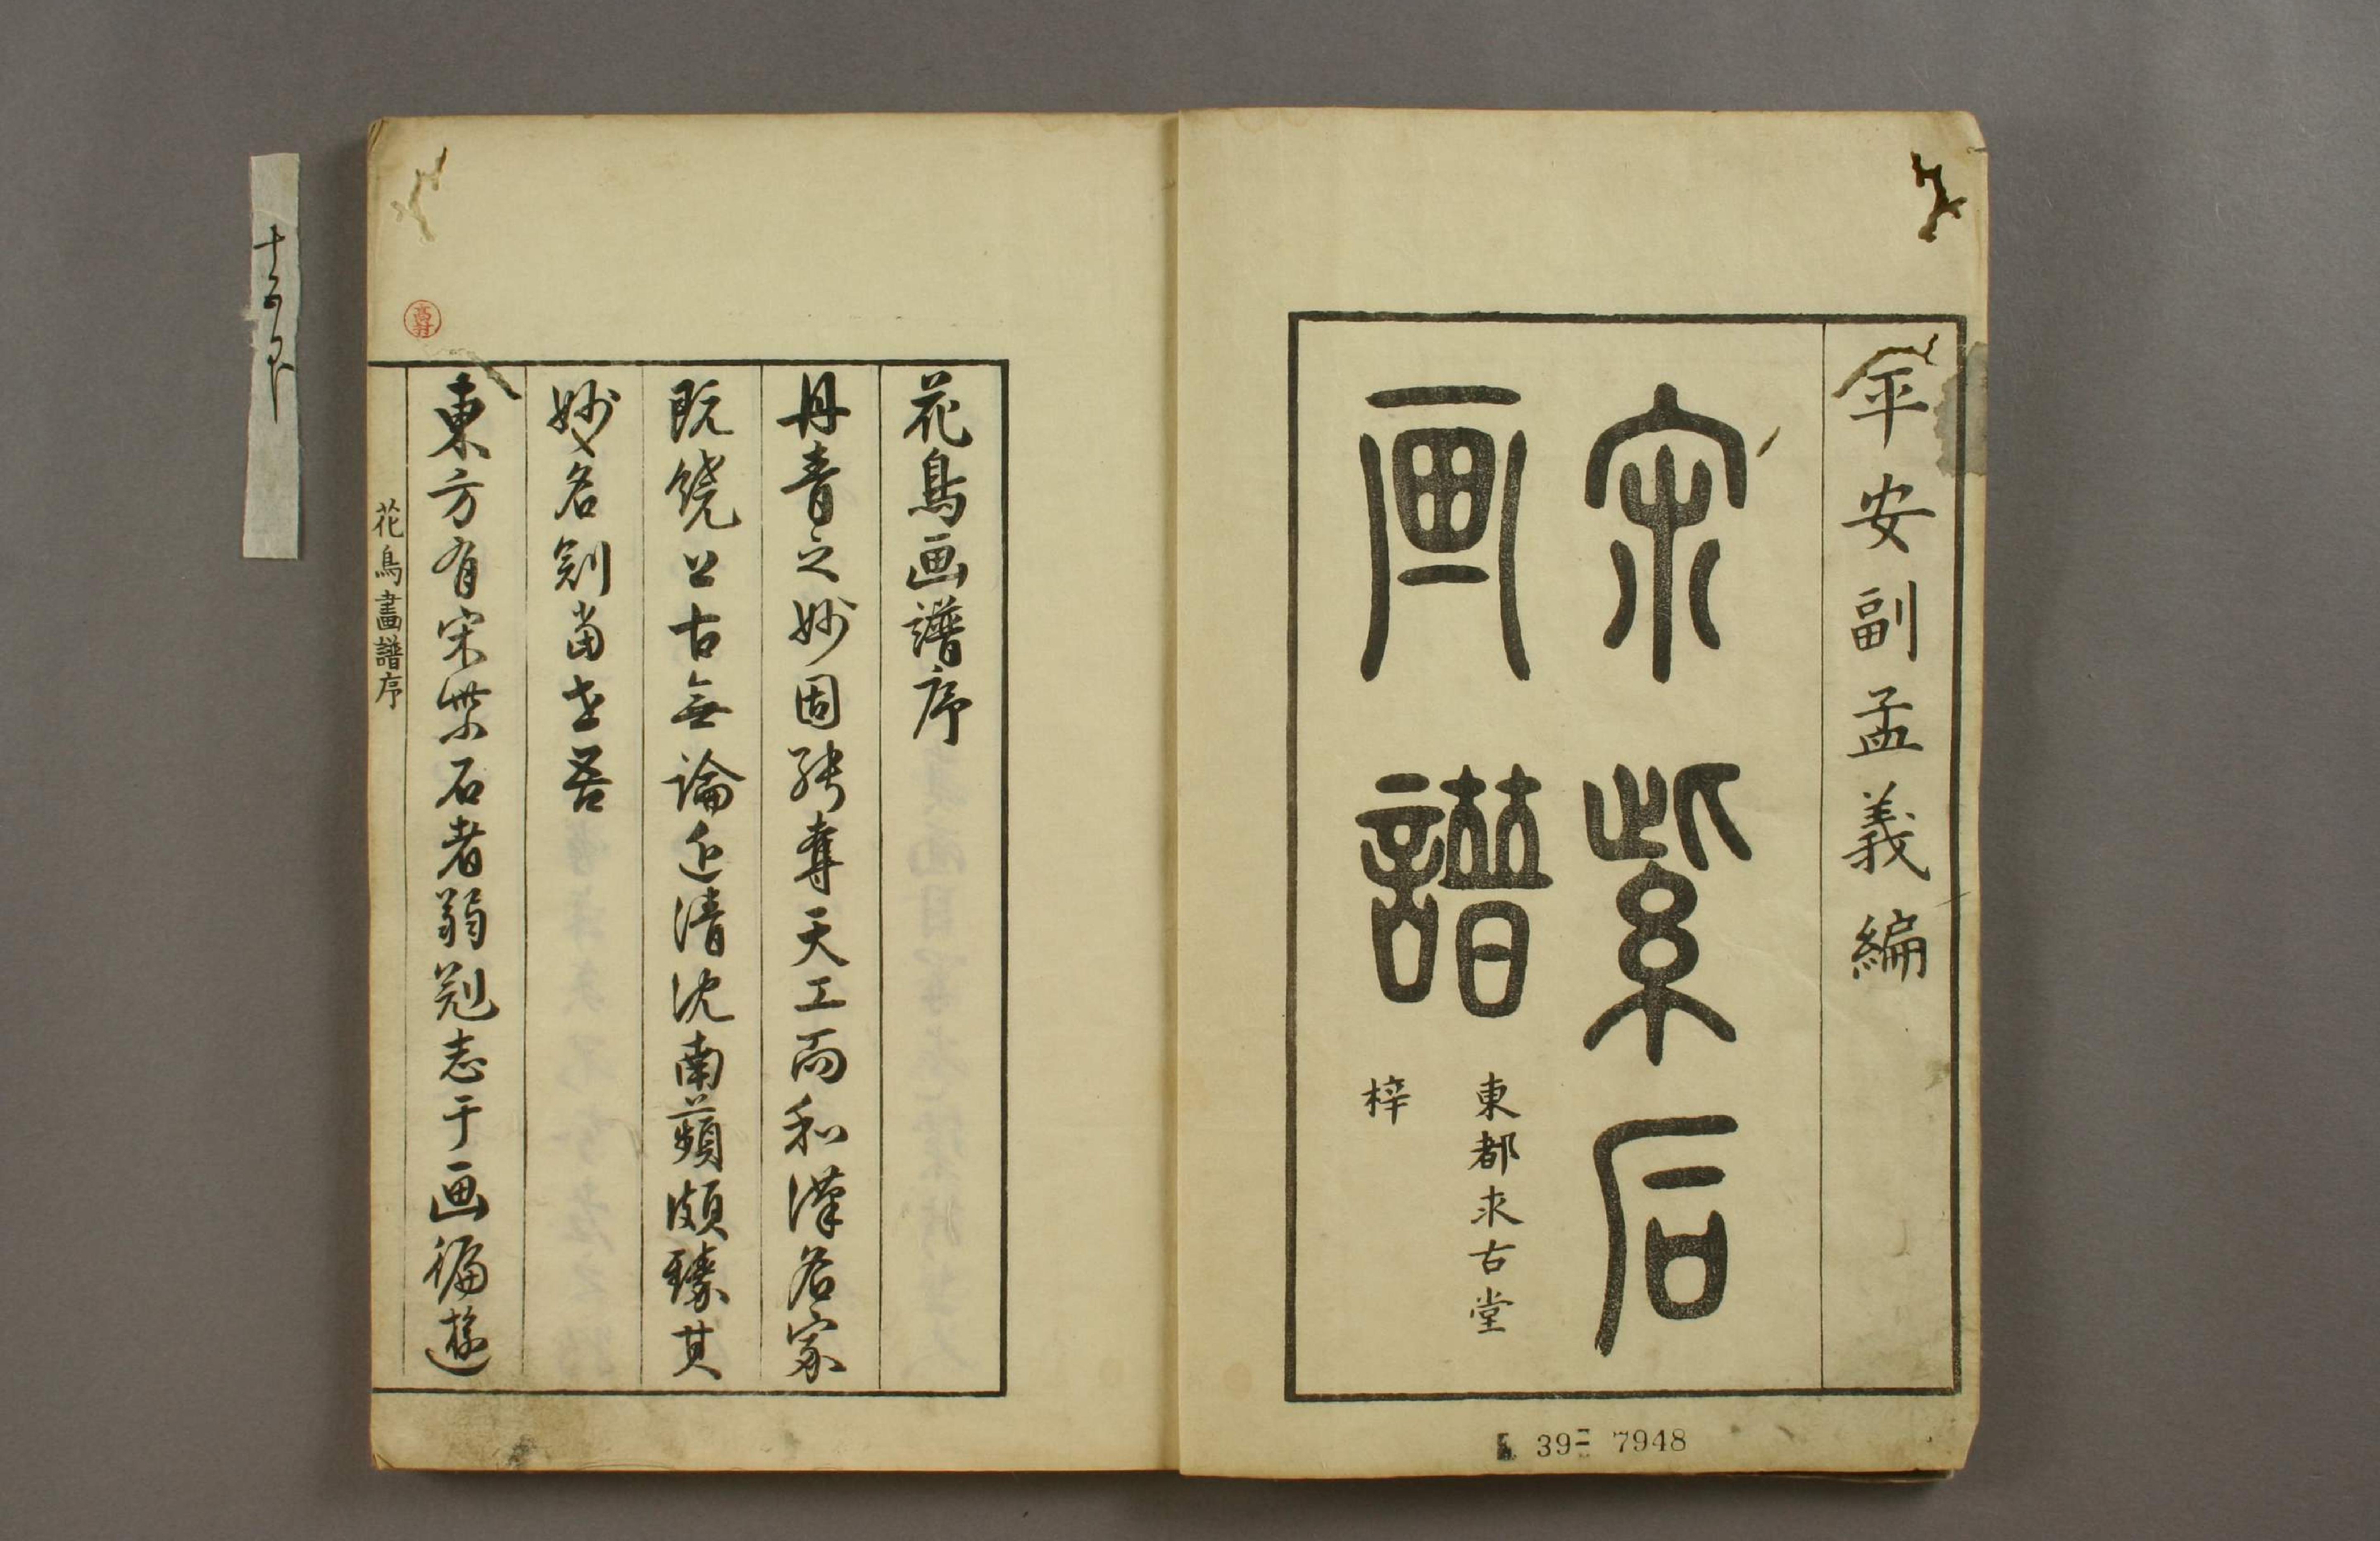 平安副孟義編
宋紫石
画譜
東都求古堂
梓
39- 7948
花鳥画譜序
丹青之妙固能奪天工而和漢名家
既饒上古無論近清沈南蘋頗臻其
妙名剏当世吾
東方有宋紫石者弱冠志于画徧遊
花鳥畫譜序